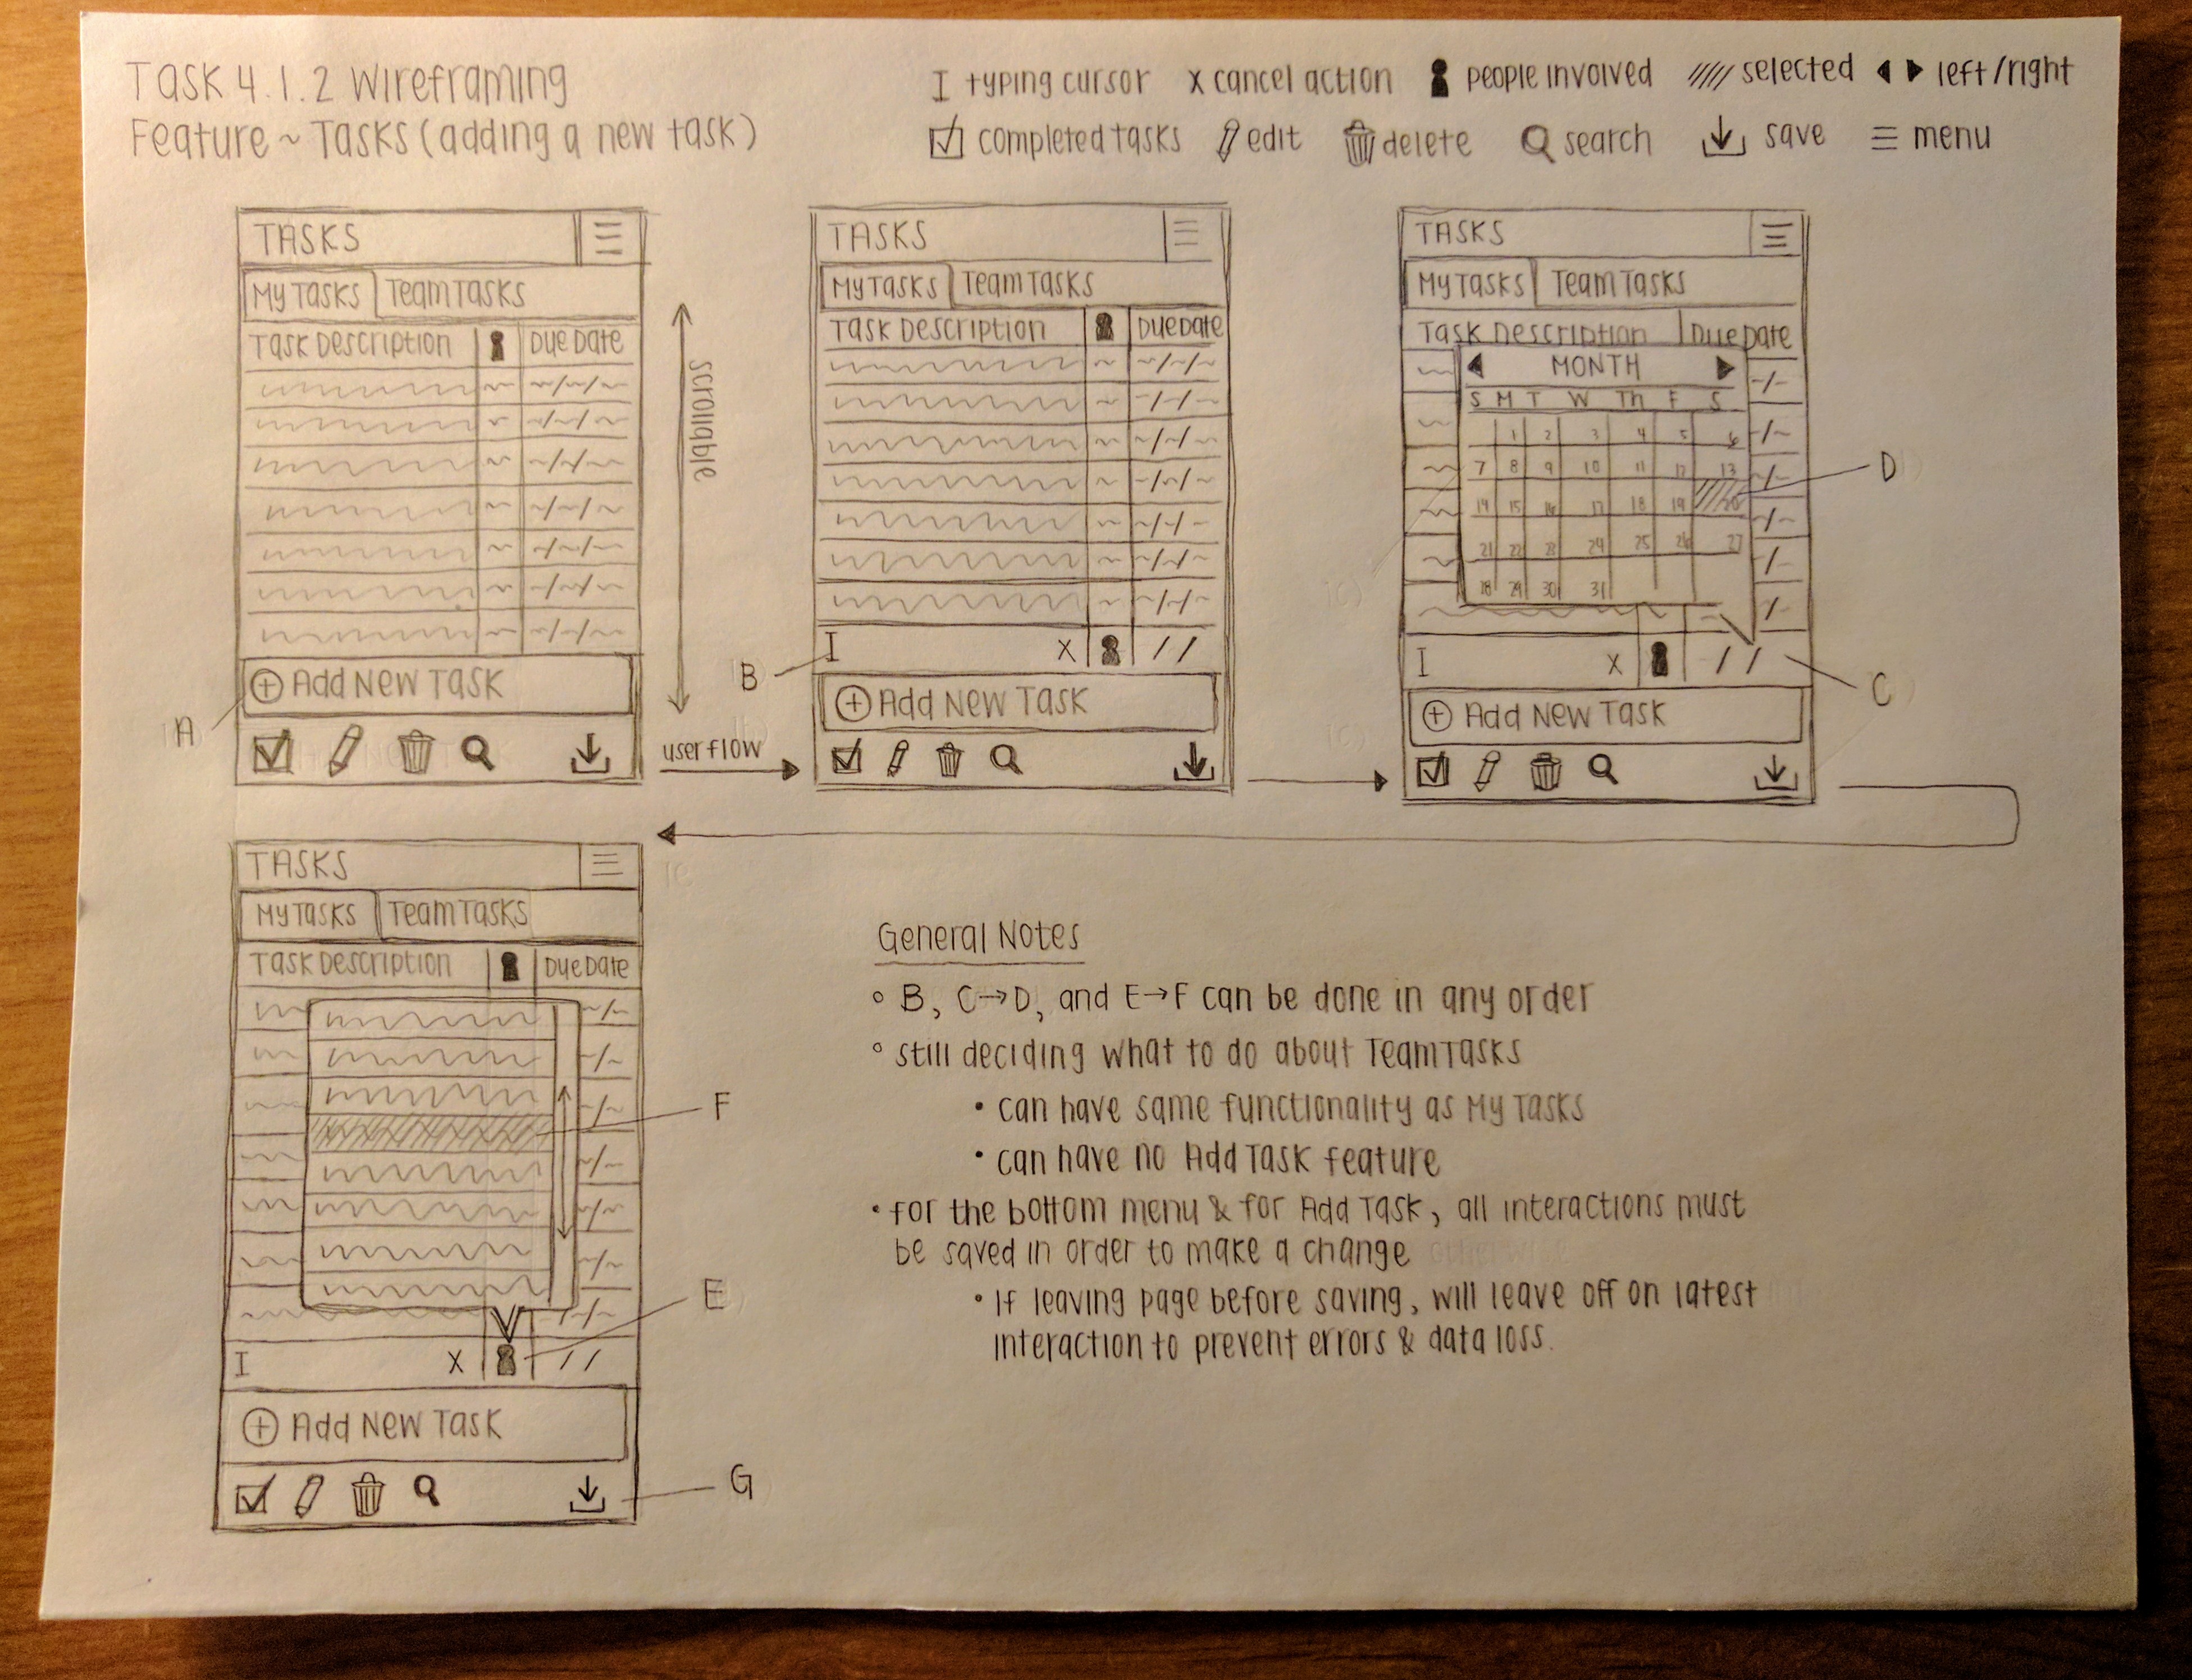 Task 4.1.2 Wireframing
Feature ~ Tasks (adding a new task)
I typing cursor x cancel action people involved selected left/right
completed tasks edit delete search save menu
TASKS
My Tasks Team Tasks
Task Description Due Date
+ Add New Task
A
scrollable
user flow
TASKS
My Tasks Team Tasks
Task Description Due Date
I x / /
B
+ Add New Task
TASKS
My Tasks Team Tasks
Task Description Due Date
MONTH
S M T W Th F S
1 2 3 4 5 6
7 8 9 10 11 12 13
14 15 16 17 18 19 20
21 22 23 24 25 26 27
18 29 30 31
D
I x / /
C
+ Add New Task
TASKS
My Tasks Team Tasks
Task Description Due Date
F
E
I x / /
+ Add New Task
G
General Notes
◦ B, C→D, and E→F can be done in any order
◦ still deciding what to do about Team Tasks
• can have same functionality as My Tasks
• can have no Add Task feature
• for the bottom menu & for Add Task, all interactions must
be saved in order to make a change
• If leaving page before saving, will leave off on latest
interaction to prevent errors & data loss.